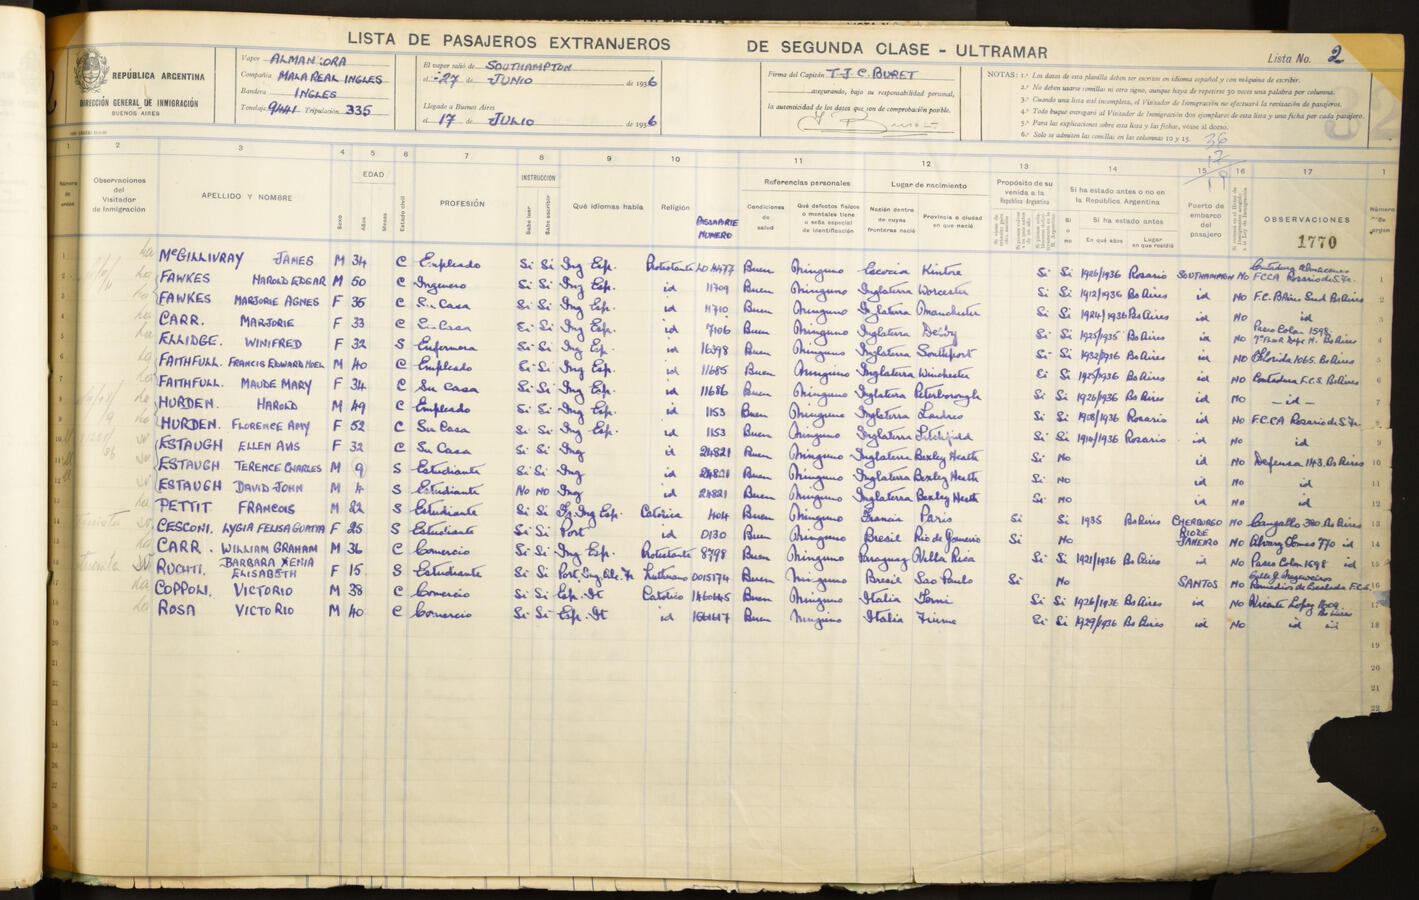 LISTA DE PASAJEROS EXTRANJEROS DE SEGUNDA CLASE - ULTRAMAR
Lista No. 2
REPÚBLICA ARGENTINA
DIRECCIÓN GENERAL DE INMIGRACIÓN
BUENOS AIRES
Vapor ALMANZORA
Compañía MALA REAL INGLES
Bandera INGLES
Tonelaje 9441 Tripulación 335
El vapor salió de SOUTHAMPTON
el 27 de JUNIO de 1936
Llegado a Buenos Aires
el 17 de JULIO de 1936
Firma del Capitán T.J.C. BURET
asegurando, bajo su responsabilidad personal,
la autenticidad de los datos que son de comprobación posible.
NOTAS: 1.ª Los datos de esta planilla deben ser escritos en idioma español y con máquina de escribir.
2.ª No deben usarse comillas ni otro signo, aunque haya de repetirse 30 veces una palabra por columna.
3.ª Cuando una lista esté incompleta, el Visitador de Inmigración no efectuará la revisación de pasajeros.
4.ª Todo buque entregará al Visitador de Inmigración dos ejemplares de esta lista y una ficha por cada pasajero.
5.ª Para las explicaciones sobre esta lista y las fichas, véase al dorso.
6.ª Solo se admiten las comillas en las columnas 10 y 15.
1 2 3 4 5 6 7 8 9 10 11 12 13 14 15 16 17 1
Número de orden
Observaciones del Visitador de Inmigración
APELLIDO Y NOMBRE
Sexo
EDAD
Años
Meses
Estado civil
PROFESIÓN
INSTRUCCION
Sabe leer
Sabe escribir
Qué idiomas habla
Religión
PASAPORTE NUMERO
Referencias personales
Condiciones de salud
Qué defectos físicos o mentales tiene o seña especial de identificación
Lugar de nacimiento
Nación dentro de cuyas fronteras nació
Provincia o ciudad en que nació
Propósito de su venida a la República Argentina
Si ha estado antes o no en la República Argentina
Si o no
Si ha estado antes
En qué años
Lugar en que residió
Puerto de embarco del pasajero
OBSERVACIONES
1770
Número de orden
McGILLIVRAY JAMES M 34 C Empleado Si Si Ing Esp. Protestante Buen Ninguno Escocia Kintore Si Si 1926/1936 Rosario SOUTHAMPTON No F.C.C.A Rosario de S. Fe. 1
FAWKES HAROLD EDGAR M 50 C Ingeniero Si Si Ing Esp. id 11709 Buen Ninguno Inglaterra Worcester Si Si 1912/1936 Bs Aires id No F.C. BAires Sud Bs Aires 2
FAWKES MARJORIE AGNES F 35 C Su Casa Si Si Ing Esp. id 11710 Buen Ninguno Inglaterra Manchester Si Si 1924/1936 Bs Aires id No id 3
CARR. MARJORIE F 33 C Su Casa Si Si Ing Esp. id 7106 Buen Ninguno Inglaterra Derby Si Si 1925/1935 Bs Aires id No Paseo Colon 1598. Bs Aires 4
ELLIDGE. WINIFRED F 32 S Enfermera Si Si Ing Esp. id 16398 Buen Ninguno Inglaterra Southport Si Si 1932/1936 Bs Aires id No Florida 1065. Bs Aires 5
FAITHFULL. FRANCIS EDWARD NOEL M 40 C Empleado Si Si Ing Esp. id 11685 Buen Ninguno Inglaterra Winchester Si Si 1925/1936 Bs Aires id No Contaduria F.C.S. BsAires 6
FAITHFULL. MAUDE MARY F 34 C Su Casa Si Si Ing Esp. id 11686 Buen Ninguno Inglaterra Peterborough Si Si 1926/1936 Bs Aires id No — id — 7
HURDEN. HAROLD M 49 C Empleado Si Si Ing Esp. id 1153 Buen Ninguno Inglaterra Londres Si Si 1908/1936 Rosario id No F.C.C.A Rosario de S. Fe.
HURDEN. FLORENCE AMY F 52 C Su Casa Si Si Ing Esp. id 1153 Buen Ninguno Inglaterra Si Si 1910/1936 Rosario id No id 9
ESTAUGH ELLEN AVIS F 32 C Su Casa Si Si Ing id 24821 Buen Ninguno Inglaterra Bexley Heath Si No id No Defensa 143. Bs Aires 10
ESTAUGH TERENCE CHARLES M 9 S Estudiante Si Si Ing id 24821 Buen Ninguno Inglaterra Bexley Heath Si No id No id 11
ESTAUGH DAVID JOHN M 4 S Estudiante No No Ing id 24821 Buen Ninguno Inglaterra Bexley Heath Si No id No id 12
PETTIT FRANCOIS M 22 S Estudiante Si Si Fr. Ing Esp. Catolica 404 Buen Ninguno Francia Paris Si Si 1935 Bs Aires CHERBURGO No Cangallo 380 Bs Aires 13
CESCONI. LYGIA FELISA GUATTA F 25 S Estudiante Si Si Port id 0130 Buen Ninguno Bresil Rio de Janeiro Si No RIO DE JANEIRO No Alvarez Tomas 770 id 14
CARR. WILLIAM GRAHAM M 36 C Comercio Si Si Ing Esp. Protestante 8798 Buen Ninguno Paraguay Villa Rica Si Si 1921/1936 Bs Aires id No Paseo Colon 1598 id 15
RUCHTI. BARBARA XENIA ELISABETH F 15 S Estudiante Si Si Port. Ing. Ale. Fr Lutherano 0015174 Buen Ninguno Bresil Sao Paulo Si No SANTOS No Remedios de Escalada F.C.S. 16
COPPONI. VICTORIO M 38 C Comercio Si Si Esp. It Catolico 1460645 Buen Ninguno Italia Si Si 1926/1936 Bs Aires id No Vicente Lopez 1609. Bs Aires 17
ROSA VICTORIO M 40 C Comercio Si Si Esp. It id 1661617 Buen Ninguno Italia Fiume Si Si 1929/1936 Bs Aires id No id id 18
19
20
21
22